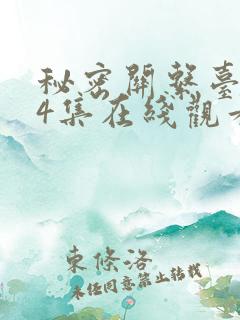 秘密關系臺
4集在綫觀看
東條洛
未经同意禁止转载